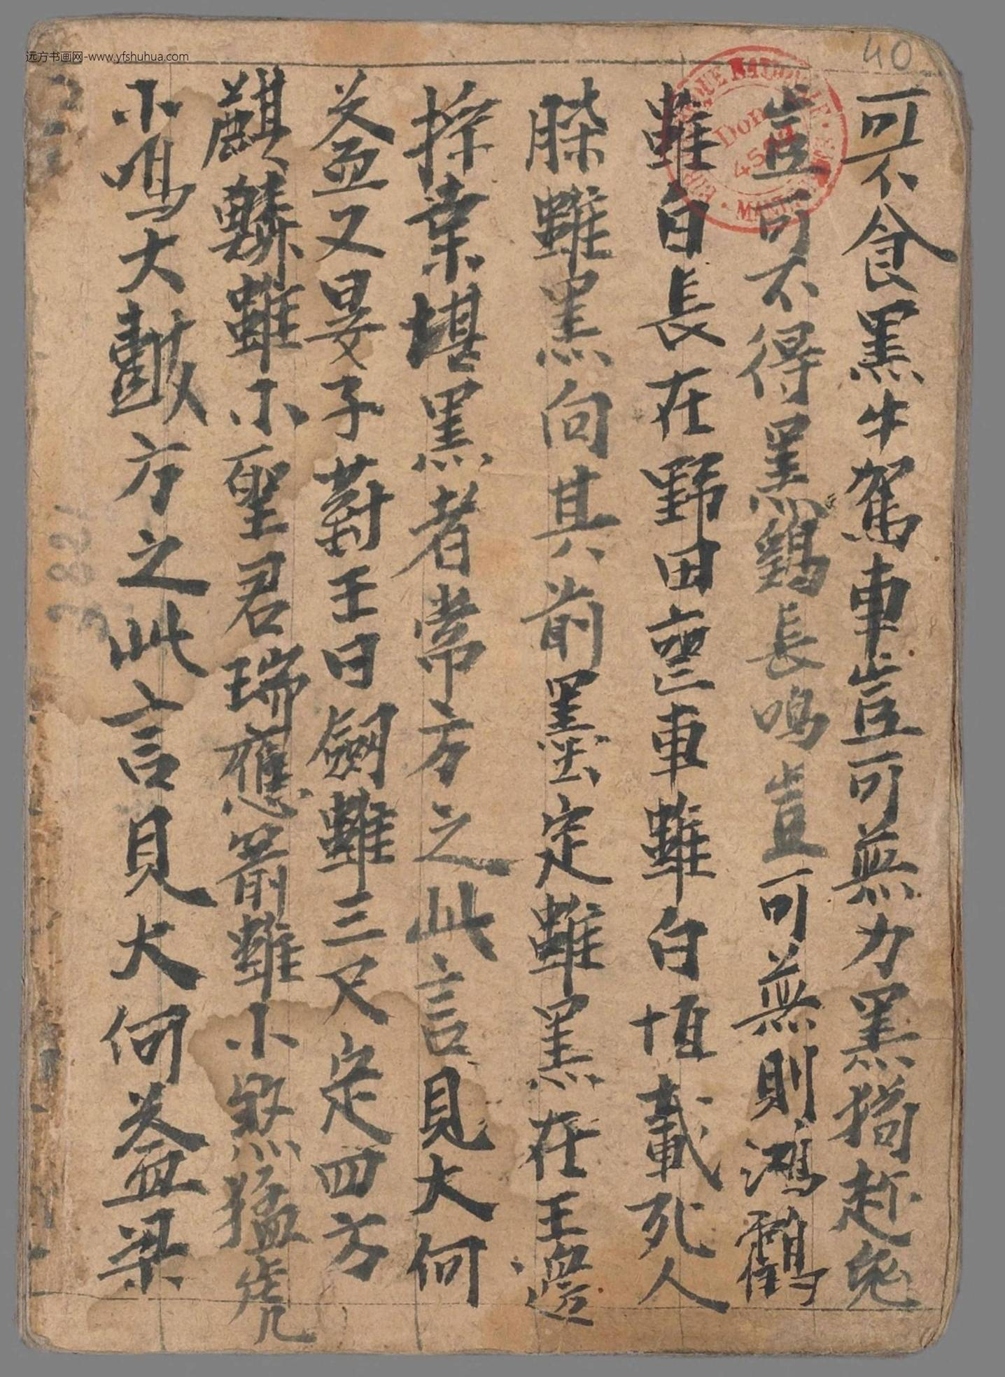 可不食黑牛駕車豈可無力黑狗趂兔
豈可不得黑鷄長鳴豈可無則鴻鶴
雖白長在野田喪車雖白恒載死人
䏶雖黑向其前墨定雖黑在王邊
採葉堪黑者常方之此言見大何
益又晏子對王曰劒雖三尺定四方
麒驎雖小聖君瑞應箭雖小煞猛虎
小鳴大皷方之此言見大何益梁
40
远方书画网-www.yfshuhua.com
Don 4502
3821